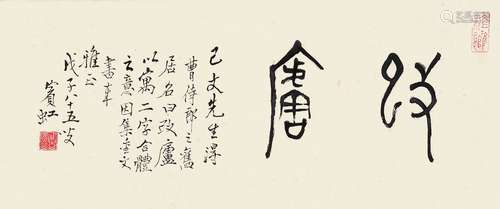 改廬
己文先生得
曹侍郎之舊
居名曰改廬
以寓二字合體
之意因集金文
書奉
雅正
戊子八十五叟
賓虹